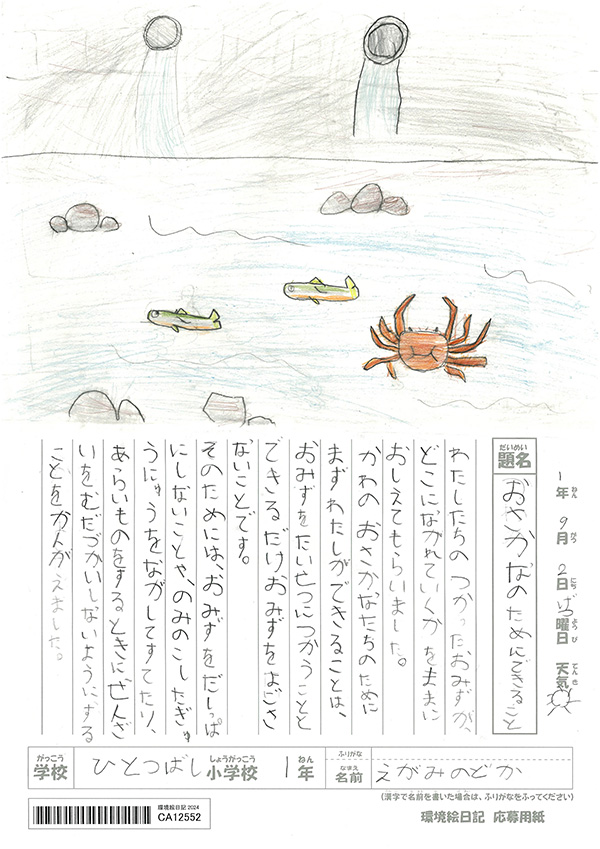 1年 9月 2日 げつ曜日 天気
ねん がつ にち ようび てんき
だいめい
題名 おさかなのためにできること
わたしたちの つかった、おみずが、
どこにながれていくか をままに
おしえてもらいました。
かわの おさかなたちのために
まずわたしができることは、
おみずをたいせつにつかうことと
できるだけおみずをよごさ
ないことです。
そのためには、おみずをだしっぱ
にしないことや、のみのこしたぎゅ
うにゅうをながしてすてたり、
あらいものをするときにせんざ
いをむだづかいしないようにする
ことをかんがえました。
がっこう しょうがっこう ねん ふりがな
学校 ひとつばし 小学校 1年 なまえ 名前 えがみのどか
(漢字で名前を書いた場合は、ふりがなをふってください)
環境絵日記 2024
CA12552
環境絵日記 応募用紙